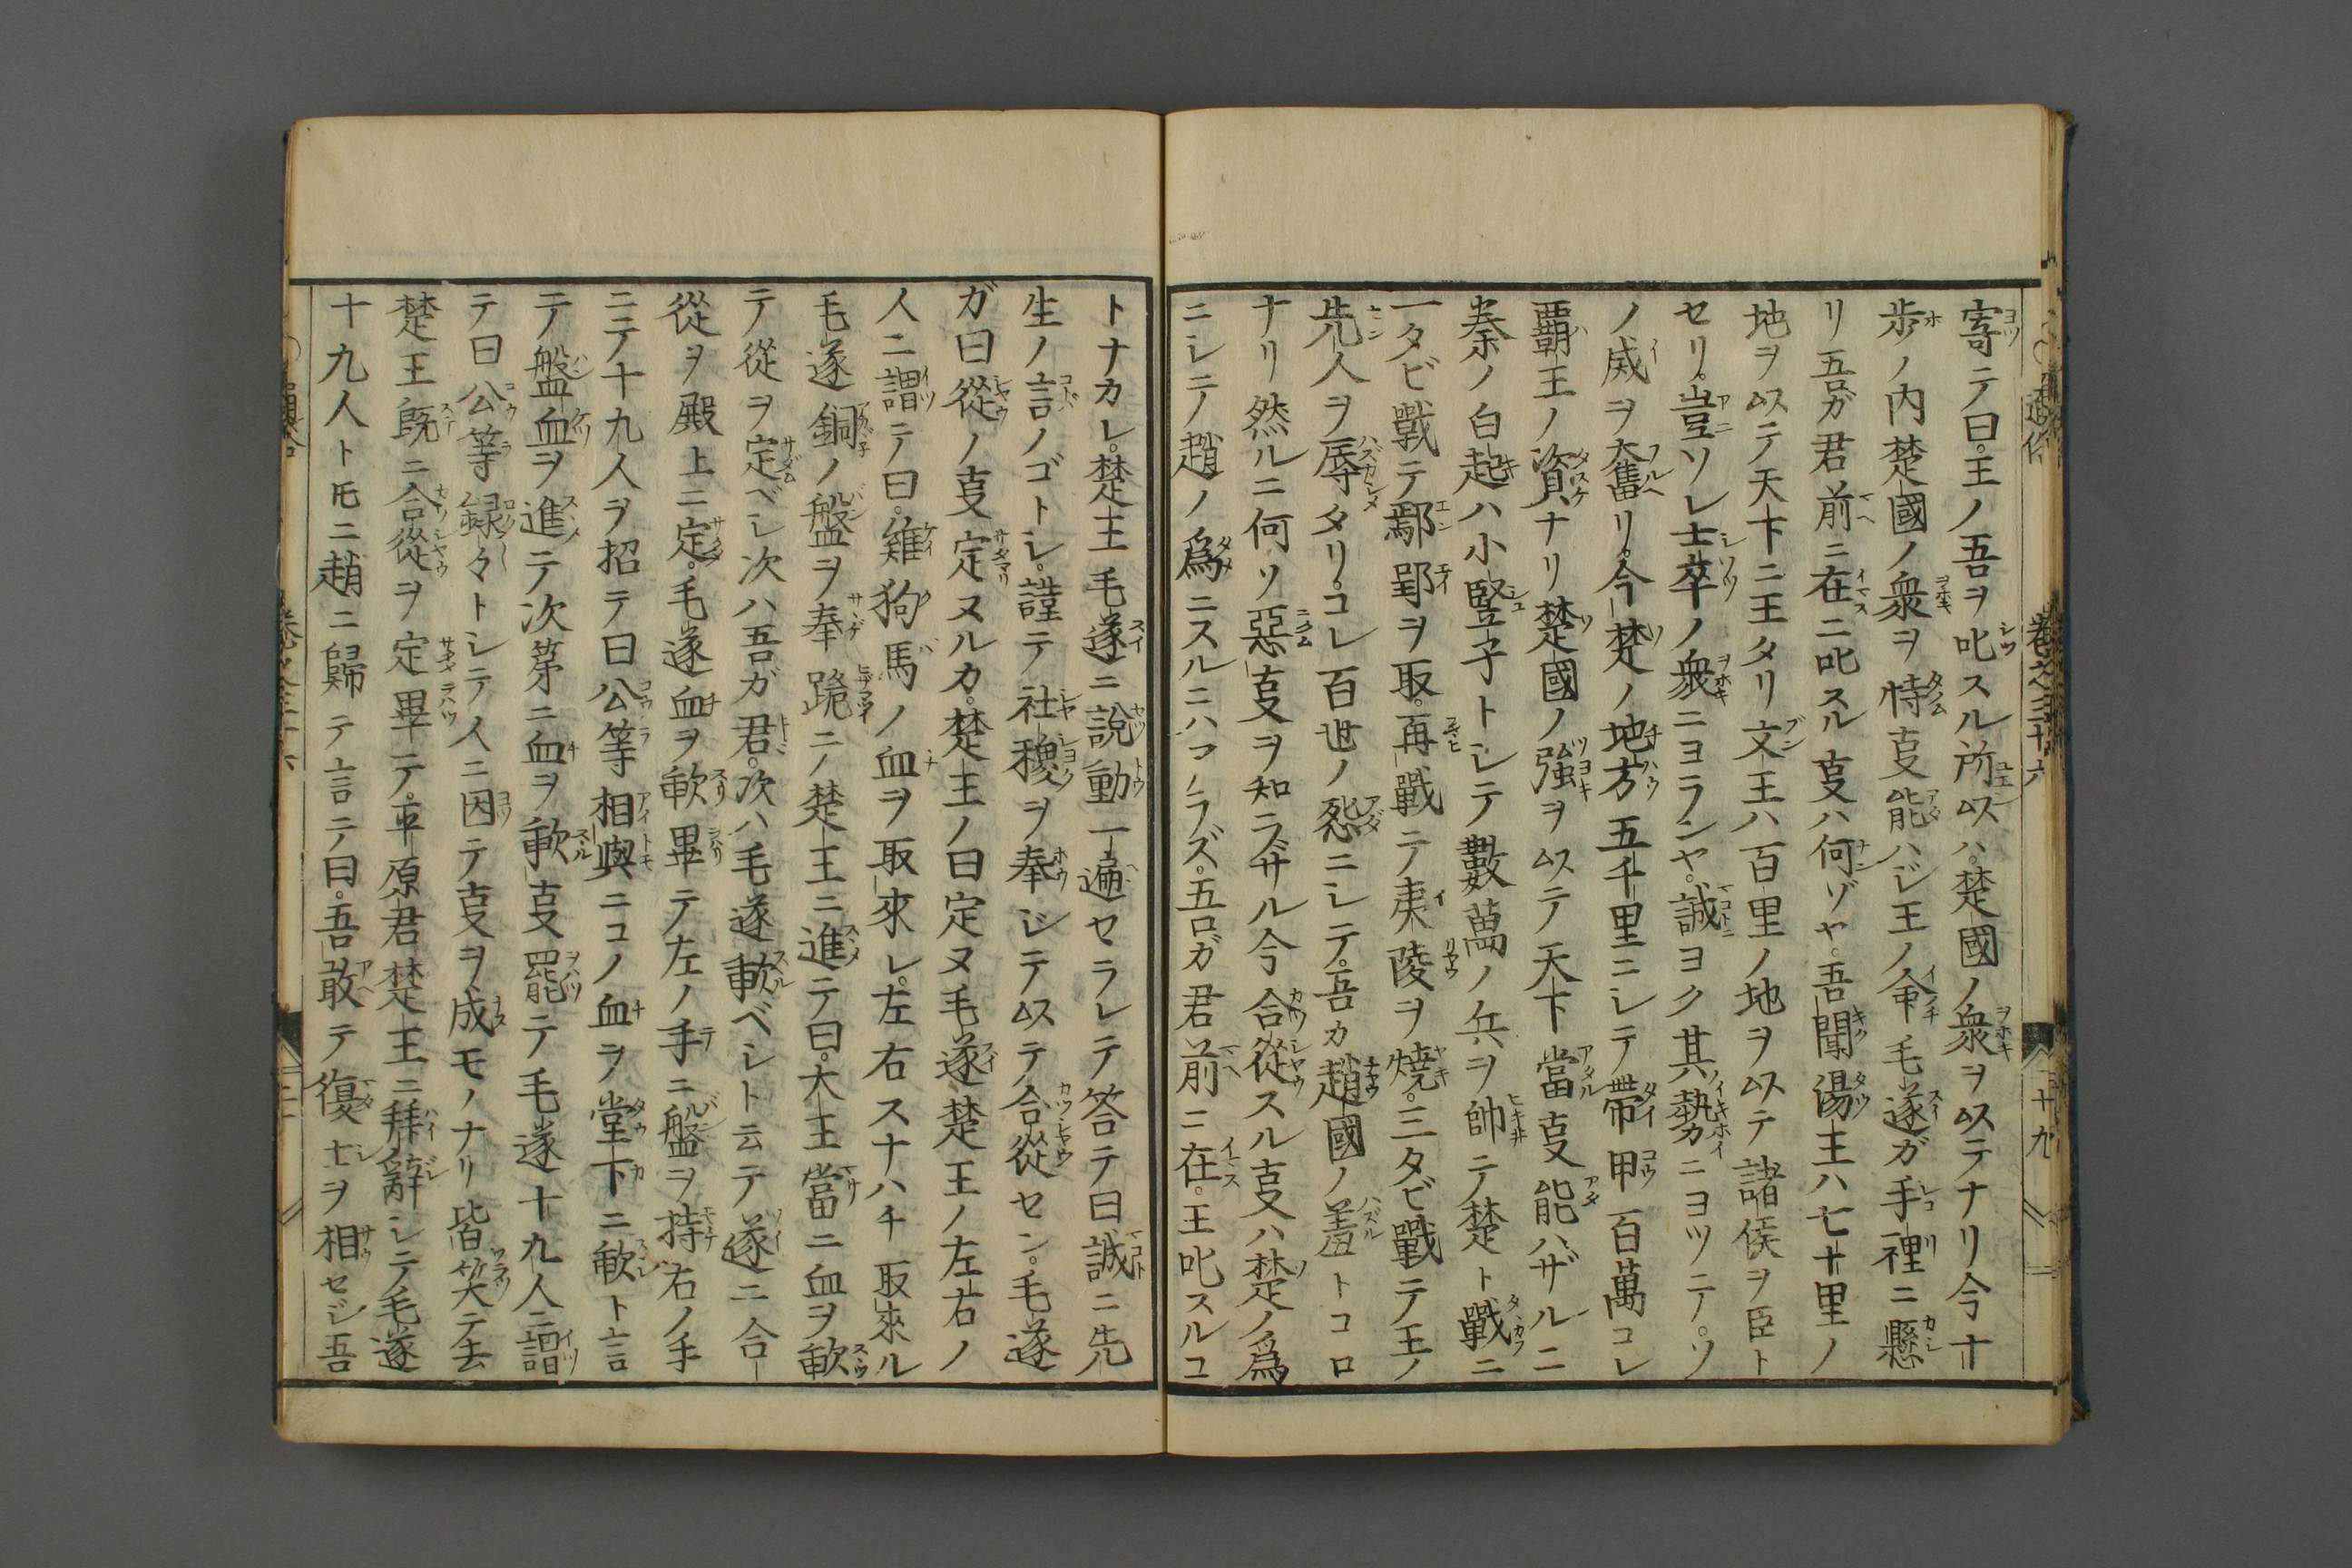 寄テ曰。王ノ吾ヲ叱スル所以ハ。楚國ノ衆ヲ以テナリ今十
歩ノ内楚國ノ衆ヲ恃ム叓能ハジ王ノ命毛遂ガ手裡ニ懸
リ吾ガ君前ニ在ニ叱スル叓ハ何ゾヤ。吾聞湯王ハ七十里ノ
地ヲ以テ天下ニ王タリ文王ハ百里ノ地ヲ以テ諸侯ヲ臣ト
セリ。豈ソレ士卒ノ衆ニヨランヤ。誠ヨク其勢ニヨツテ。ソ
ノ威ヲ奮リ。今楚ノ地方五千里ニシテ帶甲百萬コレ
覇王ノ資ナリ楚國ノ強ヲ以テ天下當叓能ハザルニ
秦ノ白起ハ小豎子トシテ數萬ノ兵ヲ帥テ楚ト戰ニ
一タビ戰テ鄢郢ヲ取。再戰テ夷陵ヲ焼。三タビ戰テ王ノ
先人ヲ辱タリ。コレ百世ノ怨ニシテ。吾カ趙國ノ羞トコロ
ナリ然ルニ何ソ惡叓ヲ知ニサル今合從スル叓ハ楚ノ爲
ニシテ趙ノ爲ニスルニハアラズ。吾ガ君前ニ在。王叱スルコ
通俗 卷之三十六 十九
トナカレ。楚王毛遂ニ說動一遍セラレテ答テ曰誠ニ先
生ノ言ノゴトシ。謹テ社稷ヲ奉ジテ以テ合從セン。毛遂
ガ曰從ノ叓定ヌルカ。楚王ノ曰定ヌ毛遂楚王ノ左右ノ
人ニ謂テ曰。雞狗馬ノ血ヲ取來レ。左右スナハチ取來ル
毛遂銅ノ盤ヲ奉跪ニノ楚王ニ進テ曰。大王當ニ血ヲ歃
テ從ヲ定ベシ次ハ吾ガ君。次ハ毛遂歃ベシト云テ遂ニ合
從ヲ殿上ニ定。毛遂血ヲ歃畢テ左ノ手ニ盤ヲ持右ノ手
ニテ十九人ヲ招テ曰公等相與ニコノ血ヲ堂下ニ歃ト言
テ盤血ヲ進テ次第ニ血ヲ歃叓罷テ毛遂十九人ニ謂
テ曰公等録々トシテ人ニ因テ叓ヲ成モノナリ皆笑テ去
楚王既ニ合從ヲ定畢テ。平原君楚王ニ拜辭シテ毛遂
十九人ト𪜈ニ趙ニ歸テ言テ曰。吾敢テ復士ヲ相セジ吾